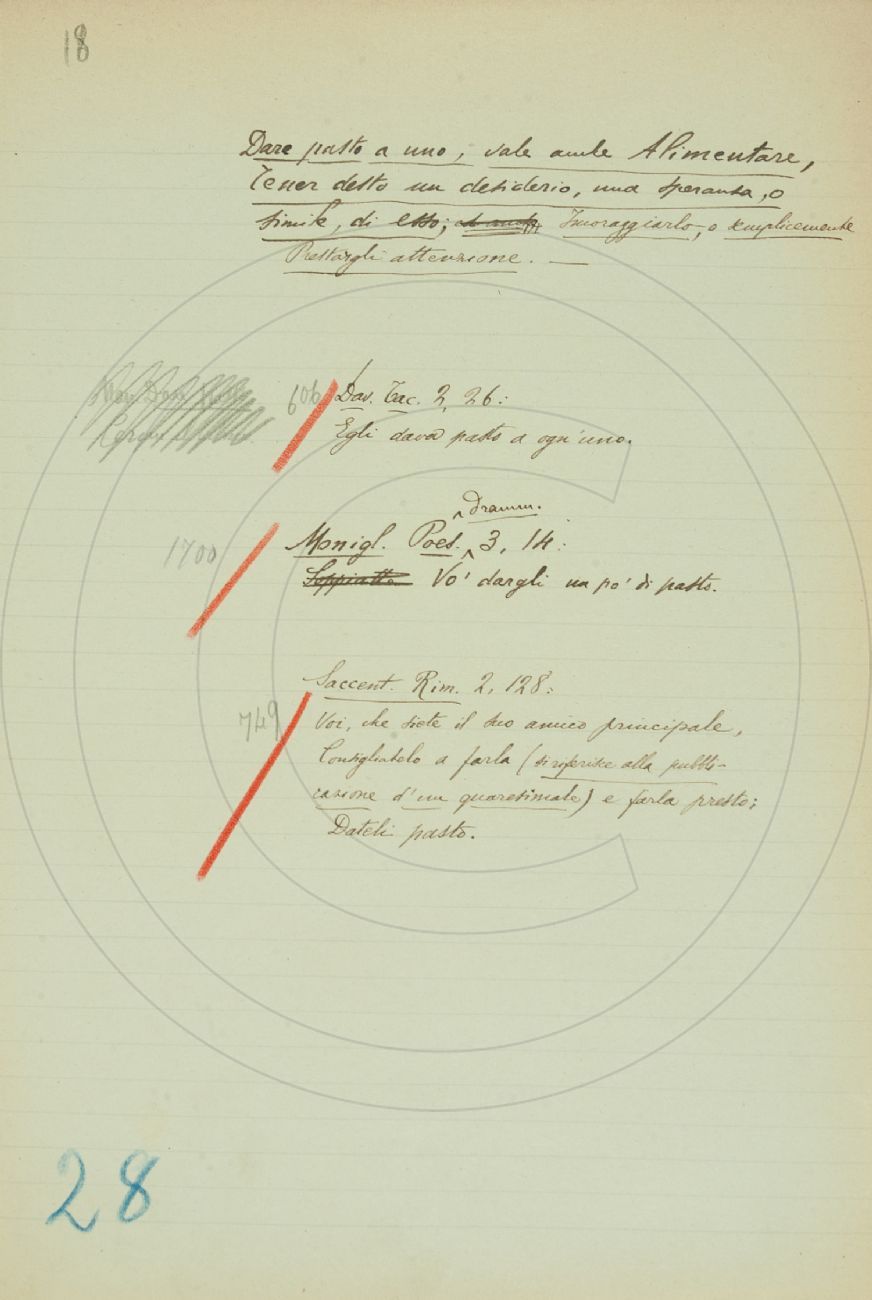 18
Dare pasto a uno, vale anche Alimentare,
Tener desto un desiderio, una speranza, o
simile, di esso; Incoraggiarlo, o semplicemente
Prestargli attenzione. —
606
Dav. Tac. 2, 26:
Egli dava pasto a ogn'uno.
Dramm.
1700
Monigl. Poes. 3, 14:
Soppiatto Vo' dargli un po' di pasto.
Saccent. Rim. 2, 128:
749
Voi, che siete il suo amico principale,
Consigliatelo a farla (si riferisce alla pubbli-
cazione d'un quaresimale) e farla presto;
Dateli pasto.
28